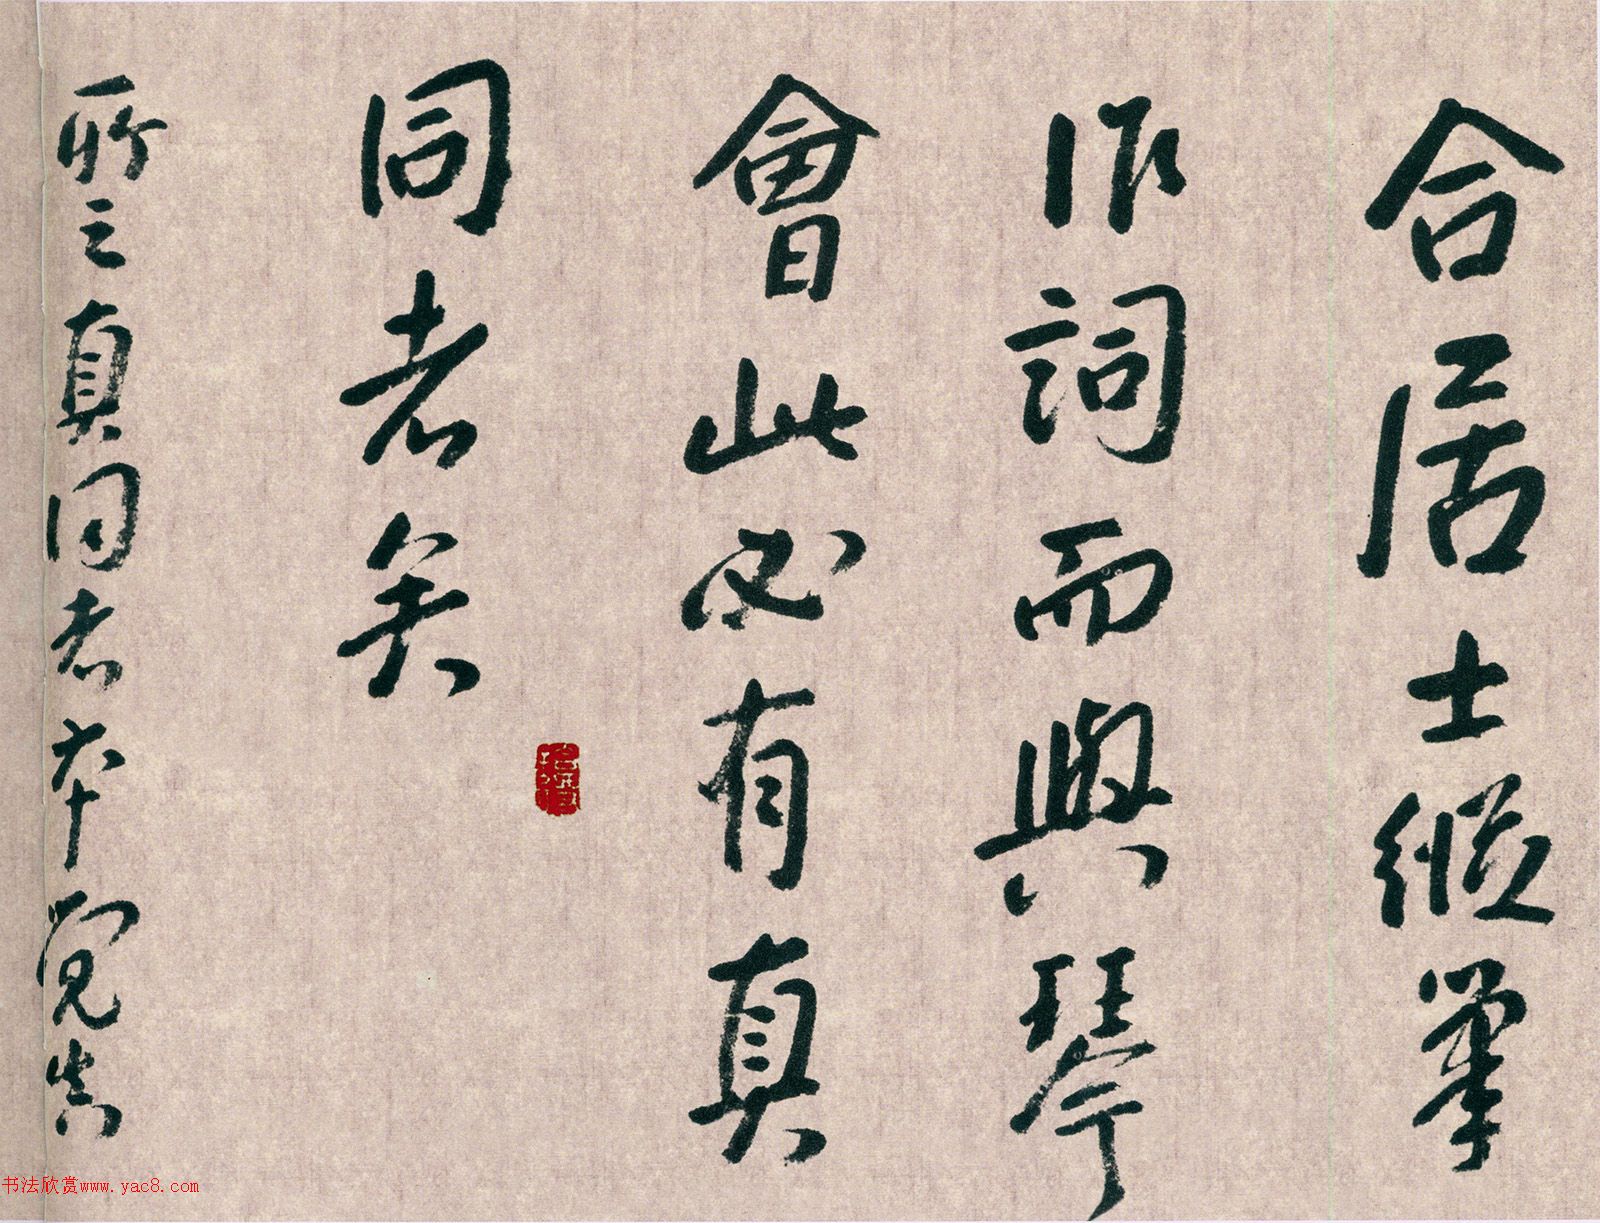 合居士縱筆
作詞而與琴
會此必有真
同者矣
所之真同者本覺
书法欣赏www.yac8.com